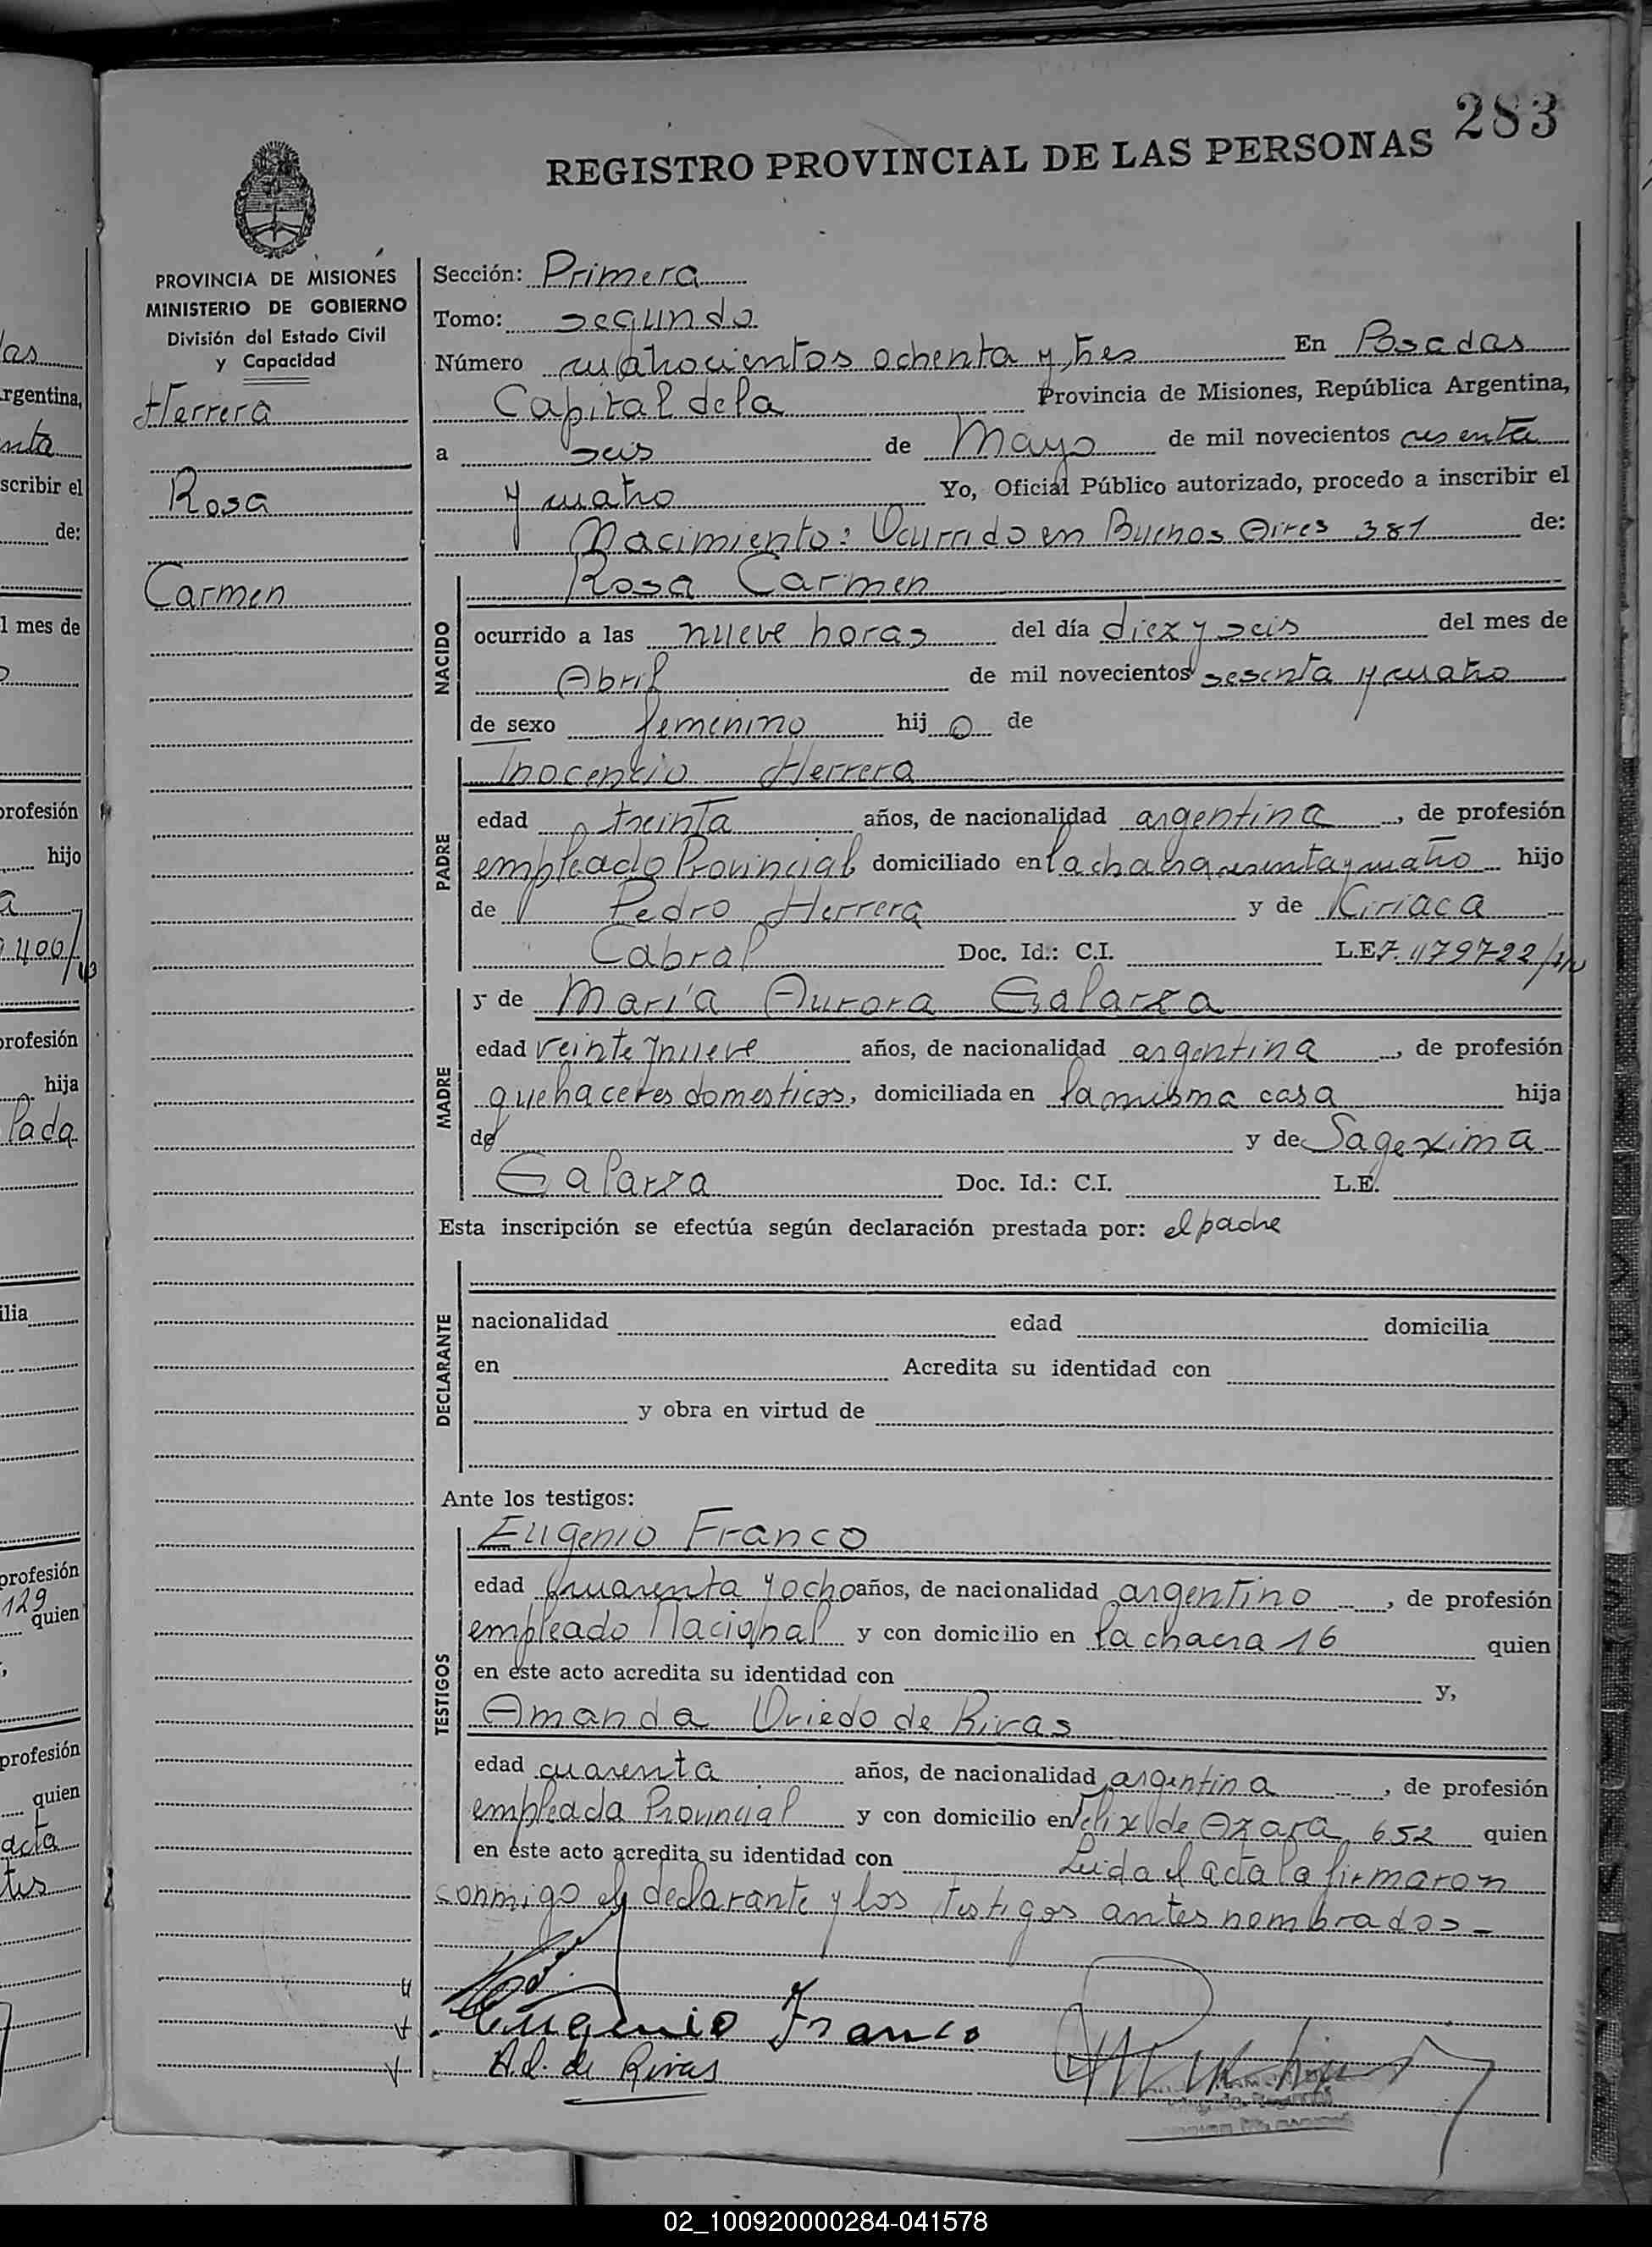 283
REGISTRO PROVINCIAL DE LAS PERSONAS
PROVINCIA DE MISIONES
MINISTERIO DE GOBIERNO
División del Estado Civil
y Capacidad
Herrera
Rosa
Carmen
Sección: Primera
Tomo: segundo
Número cuatrocientos ochenta y tres En Posadas
Capital de la Provincia de Misiones, República Argentina,
a seis de Mayo de mil novecientos sesenta
y cuatro Yo, Oficial Público autorizado, procedo a inscribir el
Nacimiento: Ocurrido en Buenos Aires 381 de:
NACIDO
Rosa Carmen
ocurrido a las nueve horas del día diez y seis del mes de
Abril de mil novecientos sesenta y cuatro
de sexo femenino hij o de
PADRE
Inocencio Herrera
edad treinta años, de nacionalidad argentina, de profesión
empleado Provincial domiciliado en la chacra sesenta y cuatro hijo
de Pedro Herrera y de Kiriaca
Cabral Doc. Id.: C.I. L.E. 7.479722
MADRE
y de María Aurora Galarza
edad veinte y nueve años, de nacionalidad argentina, de profesión
quehaceres domesticos, domiciliada en la misma casa hija
de y de Sagexima
Galarza Doc. Id.: C.I. L.E.
Esta inscripción se efectúa según declaración prestada por: el padre
DECLARANTE
nacionalidad edad domicilia
en Acredita su identidad con
y obra en virtud de
Ante los testigos:
TESTIGOS
Eugenio Franco
edad cuarenta y ocho años, de nacionalidad argentino, de profesión
empleado Nacional y con domicilio en la chacra 16 quien
en este acto acredita su identidad con y,
Amanda Oviedo de Rivas
edad cuarenta años, de nacionalidad argentina, de profesión
empleada Provincial y con domicilio en Felix de Azara 652 quien
en este acto acredita su identidad con Leida el acta la firmaron
conmigo el declarante y los testigos antes nombrados-
Eugenio Franco
A.O. de Rivas
02_100920000284-041578